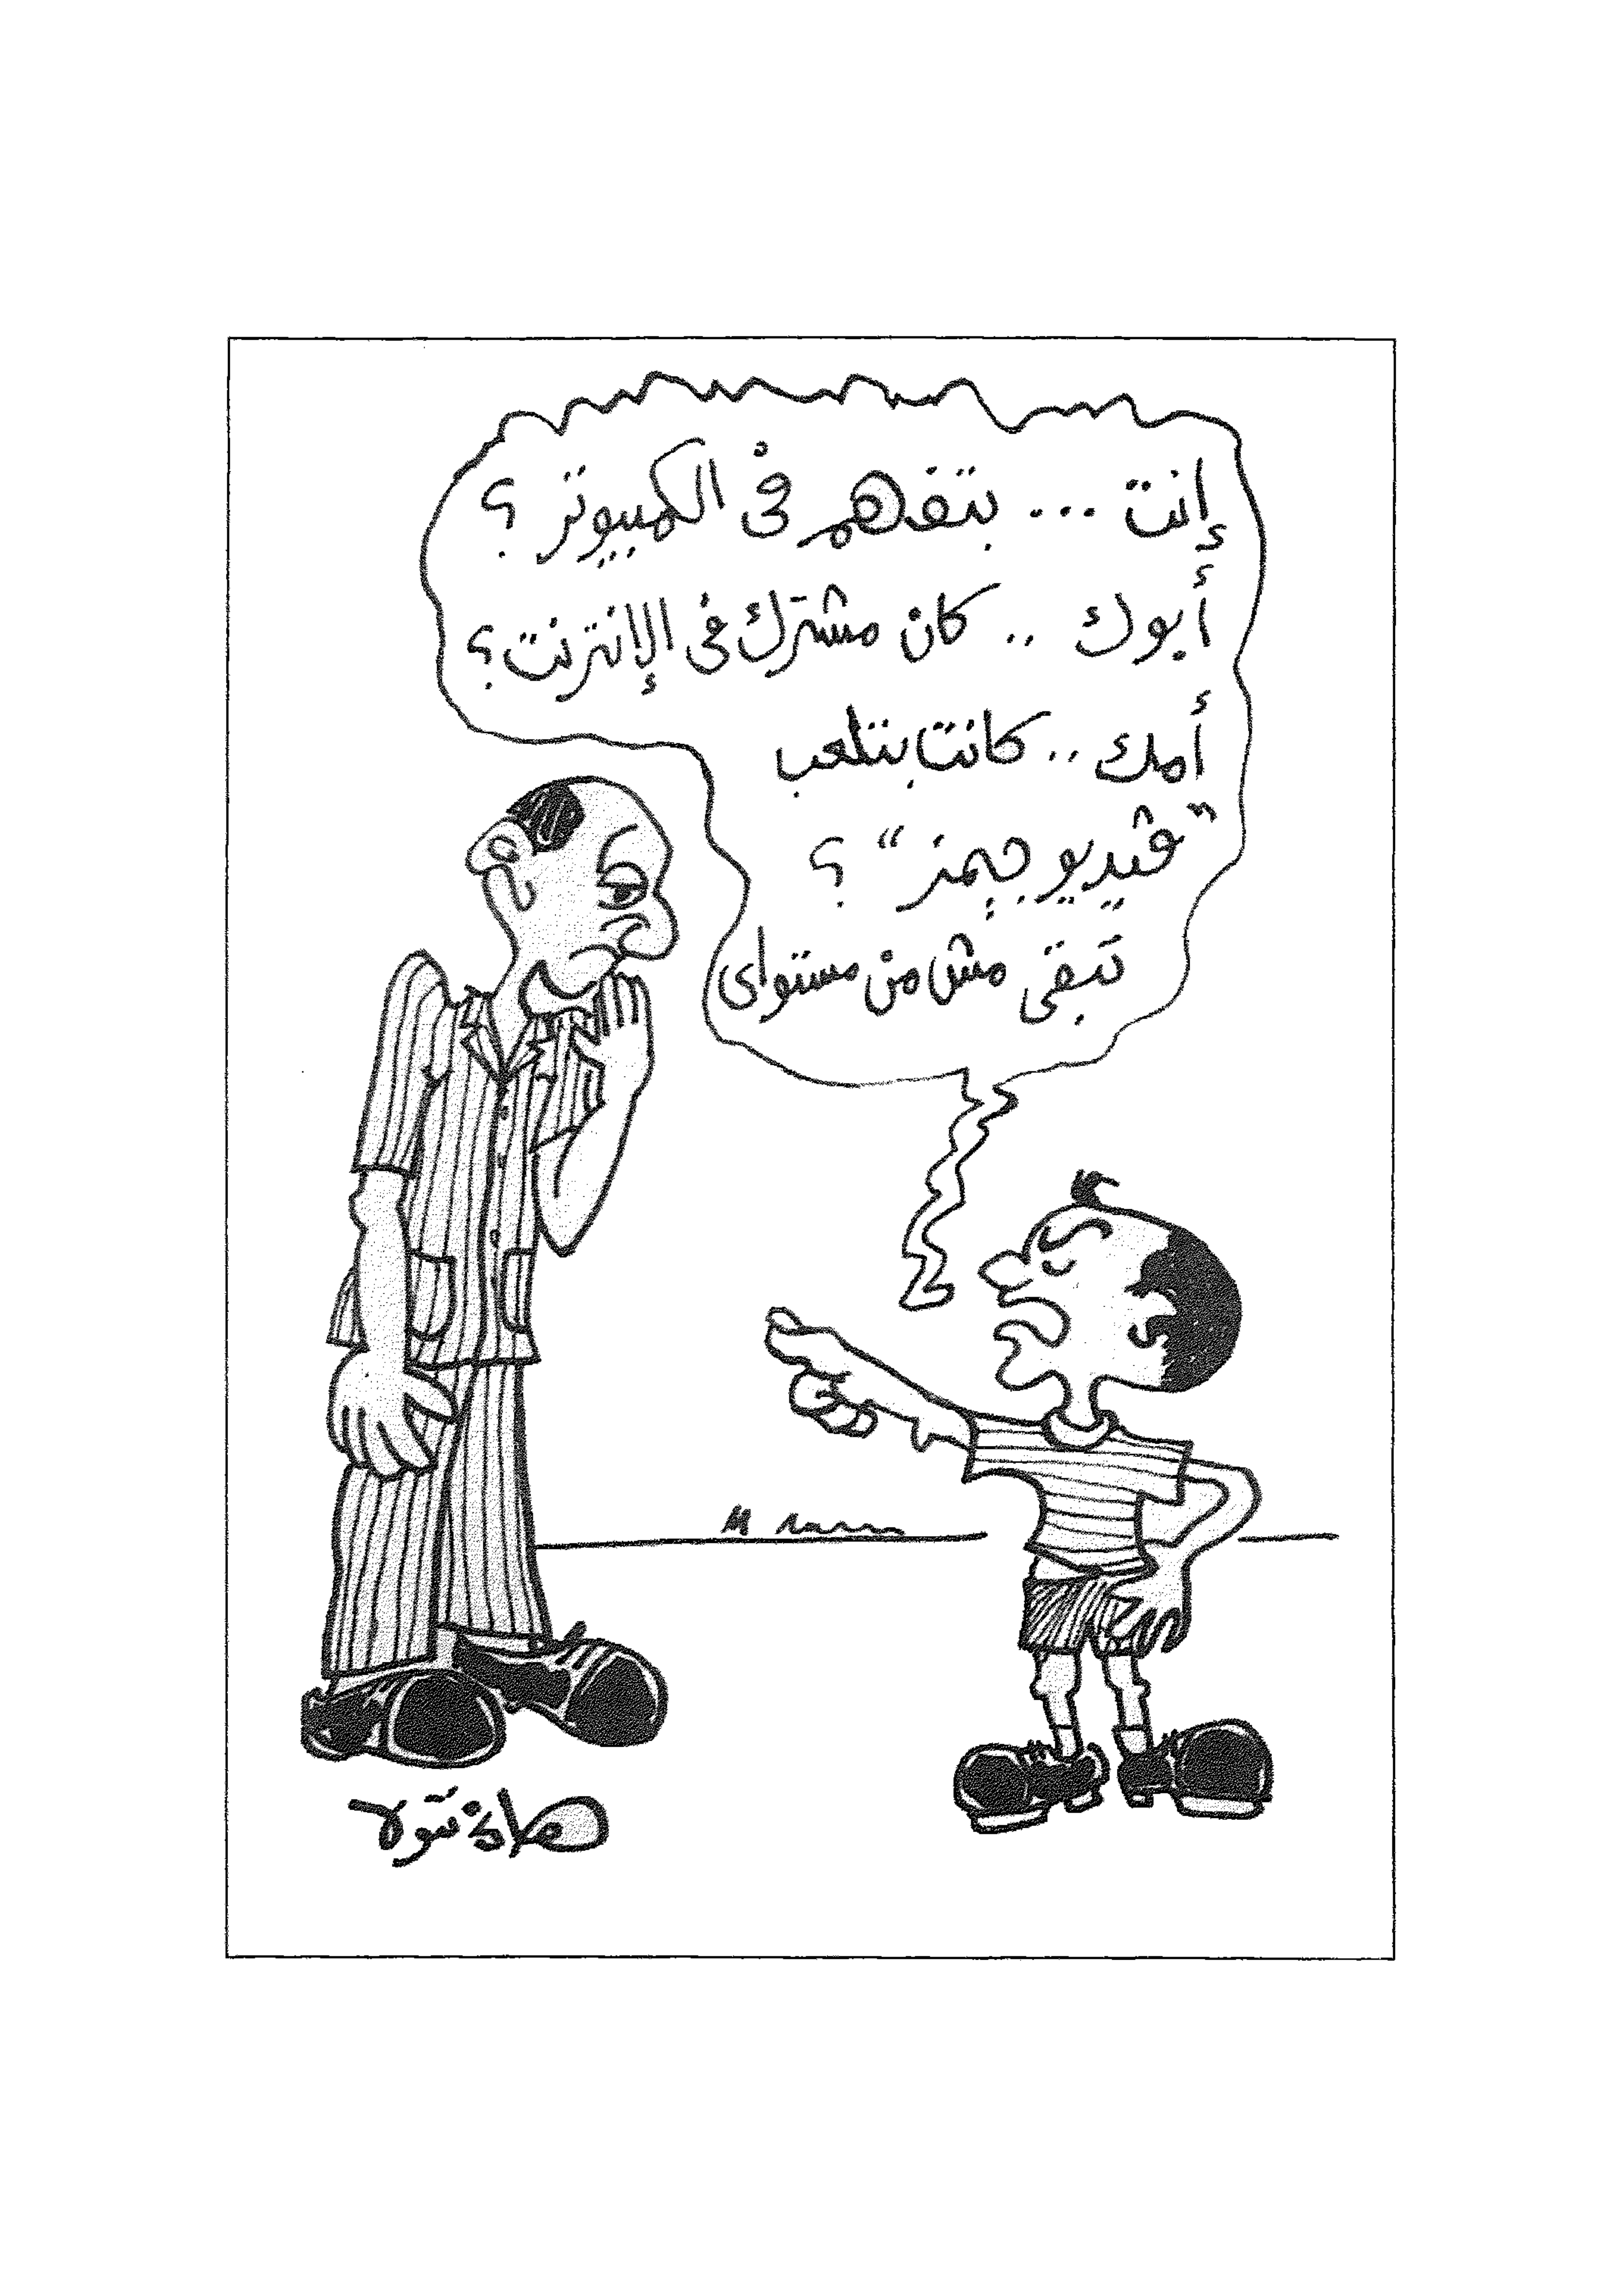 إنت ... بتفهم فى الكمبيوتر ؟
أبوك .. كان مشترك فى الإنترنت ؟
أمك .. كانت بتلعب
"ڤيديو جيمز" ؟
تبقى مش من مستواى